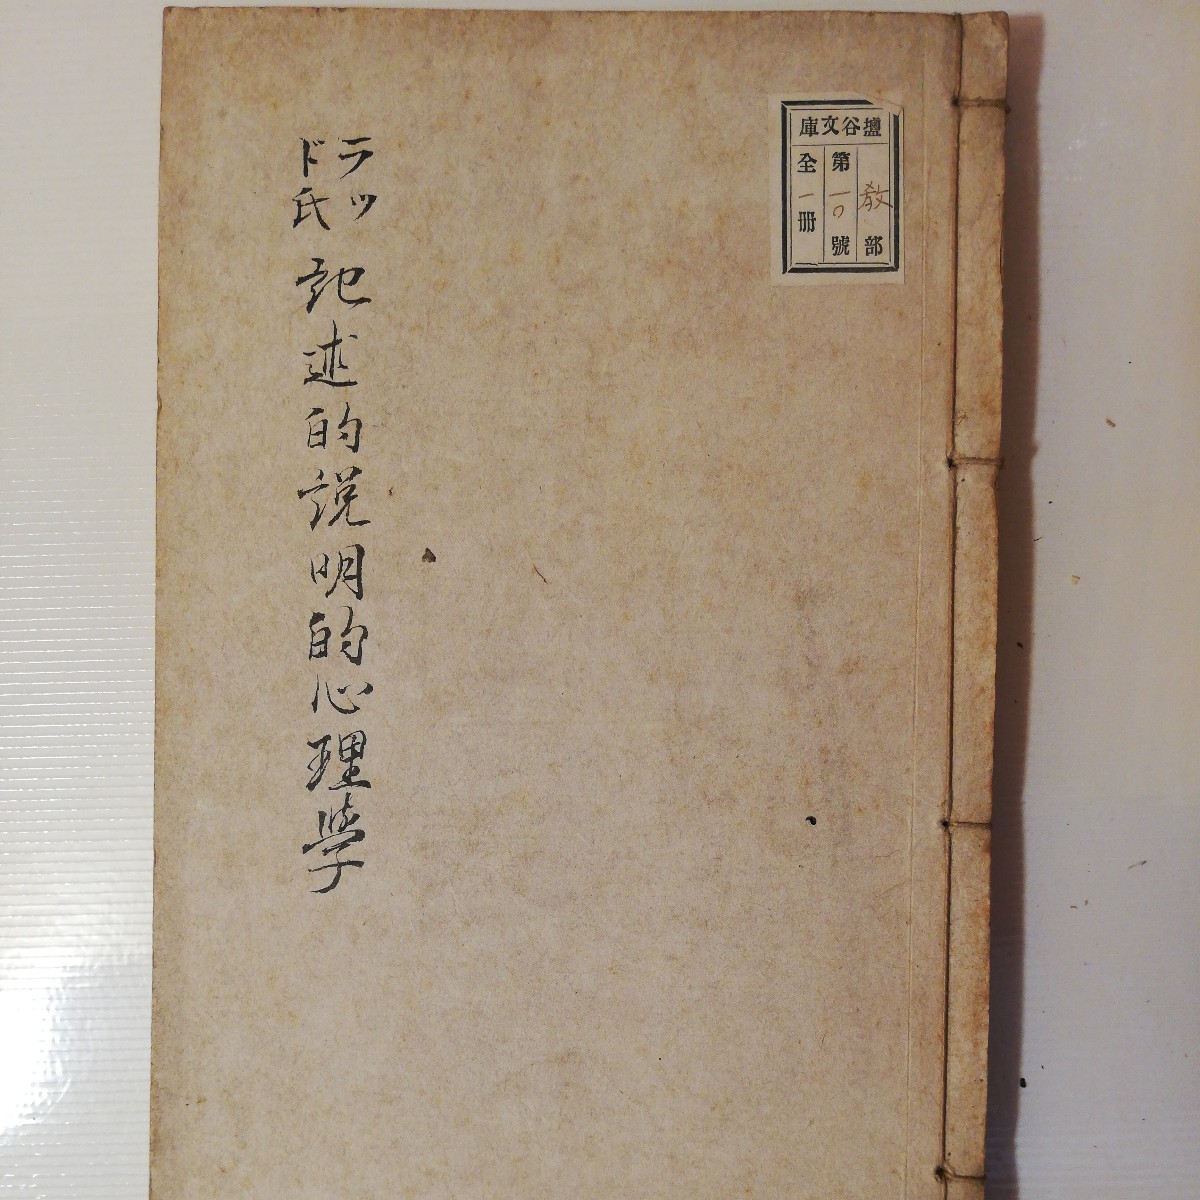 壇谷文庫
教部
第一〇號
全一冊
ラッ
ド氏
記述的説明的心理学